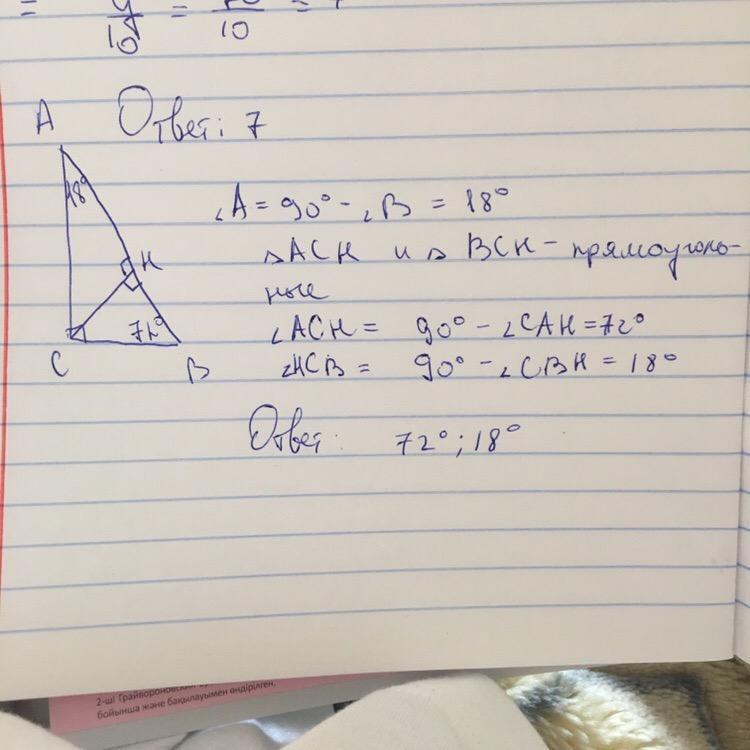 =
10
=
10
=
Ответ: 7
A
18°
H
72°
C
B
∠A = 90° - ∠B = 18°
△ACH и △ BCH - прямоуголь-
ные
∠ACH = 90° - ∠CAH = 72°
∠HCB = 90° - ∠CBH = 18°
Ответ: 72°; 18°
2-ші Грайвороновский
бойынша және бақылауымен өндірілген.